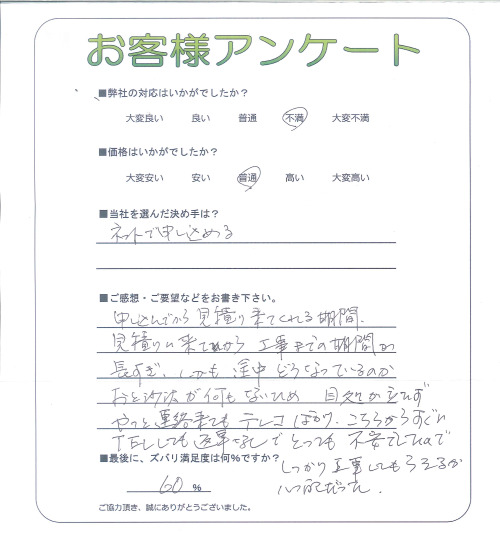 お客様アンケート
■弊社の対応はいかがでしたか？
大変良い 良い 普通 不満 大変不満
■価格はいかがでしたか？
大変安い 安い 普通 高い 大変高い
■当社を選んだ決め手は？
ネットで申し込める
■ご感想・ご要望などをお書き下さい。
申し込んでから見積り来てくれる期間、
見積りに来てから工事までの期間が
長すぎ、しかも途中どうなっているのか
おと沙汰が何もないため 目処が立たず
やっと連絡来ても テレコばかり、こちらからすぐに
TELしても返事なしでとっても不安でしたので
■最後に、ズバリ満足度は何%ですか？
しっかり工事してもらえるか
心配だった。
60 %
ご協力頂き、誠にありがとうございました。